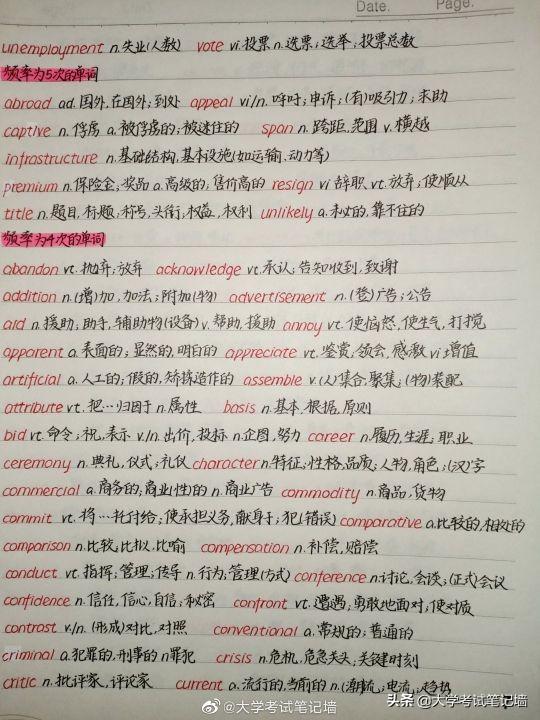 Date. Page.
unemployment n.失业(人数) vote vi.投票 n.选票;选举;投票总数
频率为5次的单词
abroad ad.国外,在国外;到处 appeal vi/n.呼吁;申诉;(有)吸引力;求助
captive n.俘虏 a.被俘虏的;被迷住的 span n.跨距,范围 v.横越
infrastructure n.基础结构,基本设施(如运输、动力等)
premium n.保险金;奖品 a.高级的;售价高的 resign vi.辞职 vt.放弃;使顺从
title n.题目,标题;称号,头衔;权益,权利 unlikely a.未必的,靠不住的
频率为4次的单词
abandon vt.抛弃;放弃 acknowledge vt.承认;告知收到,致谢
addition n.(增)加,加法;附加(物) advertisement n.(登)广告;公告
aid n.援助;助手,辅助物(设备) v.帮助,援助 annoy vt.使恼怒,使生气,打搅
apparent a.表面的;显然的,明白的 appreciate vt.鉴赏,领会,感激 vi.增值
artificial a.人工的;假的,矫揉造作的 assemble v.(人)集合,聚集;(物)装配
attribute vt.把…归因于 n.属性 basis n.基本,根据,原则
bid vt.命令;祝,表示 v/n.出价,投标 n.企图,努力 career n.履历,生涯;职业
ceremony n.典礼,仪式;礼仪 character n.特征;性格,品质;人物,角色;(汉)字
commercial a.商务的,商业(性)的 n.商业广告 commodity n.商品,货物
commit vt.将…托付给;使承担义务,献身于;犯(错误) comparative a.比较的,相对的
comparison n.比较;比拟,比喻 compensation n.补偿,赔偿
conduct vt.指挥;管理;传导 n.行为;管理(方式) conference n.讨论,会谈;(正式)会议
confidence n.信任,信心,自信;秘密 confront vt.遭遇;勇敢地面对;使对质
contrast v/n.(形成)对比,对照 conventional a.常规的;普通的
criminal a.犯罪的,刑事的 n.罪犯 crisis n.危机,危急关头;关键时刻
critic n.批评家,评论家 current a.流行的,当前的 n.(潮)流;电流;趋势
@大学考试笔记墙
头条 @大学考试笔记墙